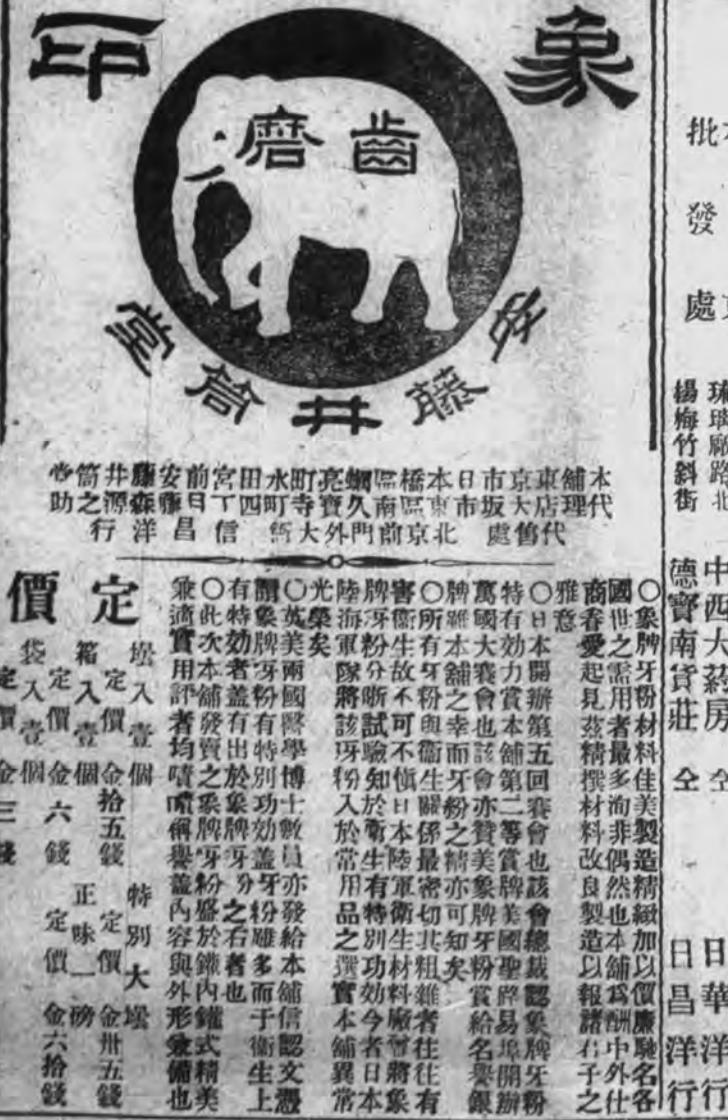 批發處
琉璃廠路北 中西大葯房 仝 日華洋行
楊梅竹斜街 德寶南貨莊 仝 日昌洋行
象印
齒磨
安藤井筒堂
本舖東京市日本橋區蠣壳町水田宮前安藤井筒堂
代理店大坂市東區南久寶寺町四丁目森源之助
代舊處北京前門外大信昌洋行
〇象牌牙粉材料佳美製造精緻加以價廉馳名各
國世之需用者最多洵非偶然也本舖爲酬中外仕
商眷愛起見茲精撰材料改良製造以報諸君子之
雅意
〇日本開辦第五回賽會也該會總裁認象牌牙粉
特有効力賞本舖第二等賞牌美國聖路易埠開辦
萬國大賽會也該會亦贊美象牌牙粉賞給名譽銀
牌雖本舖之幸而牙粉之精亦可知矣
〇所有牙粉與衞生關係最密切其粗雜者往往有
害衞生故不可不愼日本陸軍衞生材料廠曾將象
牌牙粉分晰試驗知於衞生有特別功効今者日本
陸海軍隊將該牙粉入於常用品之選實本舖異常
光榮矣
〇英美兩國醫學博士數員亦發給本舖信認文憑
謂象牌牙粉有特別功効蓋牙粉雖多而于衞生上
有特効者蓋有出於象牌牙粉之右者也
〇此次本舖發賣之象牌牙粉盛於鐵內鑵式精美
兼適實用評者均嘖嘖稱譽蓋內容與外形兼備也
定價
壜入壹個 定價 金拾五錢
箱入壹個 定價 金六錢
袋入壹個 定價 金三錢
特別大壜 定價 金卅五錢
正味一磅 定價 金六拾錢